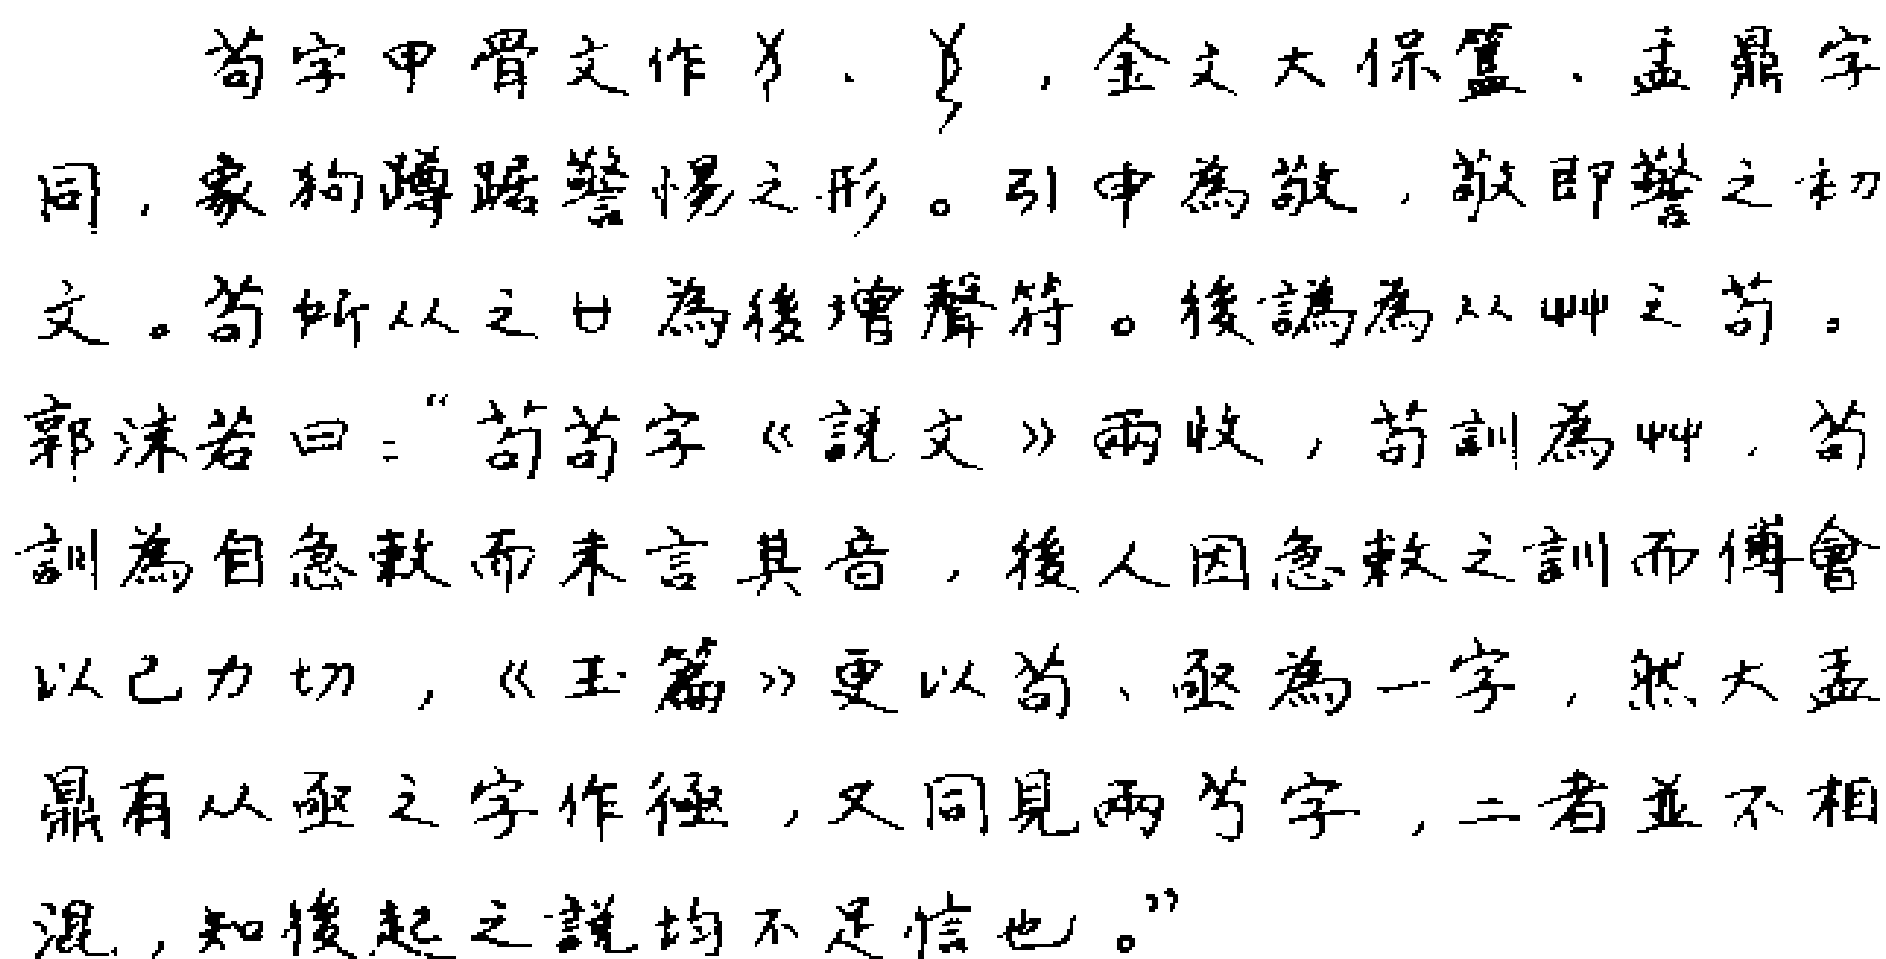 茍字甲骨文作、，金文大保簋、盂鼎字
同，象狗蹲踞警惕之形。引申為敬，敬即警之初
文。茍所从之廿為後增聲符。後譌為从艸之苟。
郭沫若曰：“苟茍字《說文》兩收，苟訓為艸，茍
訓為自急敕而未言其音，後人因急敕之訓而傅會
以己力切，《玉篇》更以茍、亟為一字，然大盂
鼎有从亟之字作極，又同見兩芍字，二者並不相
混，知後起之說均不足信也。”